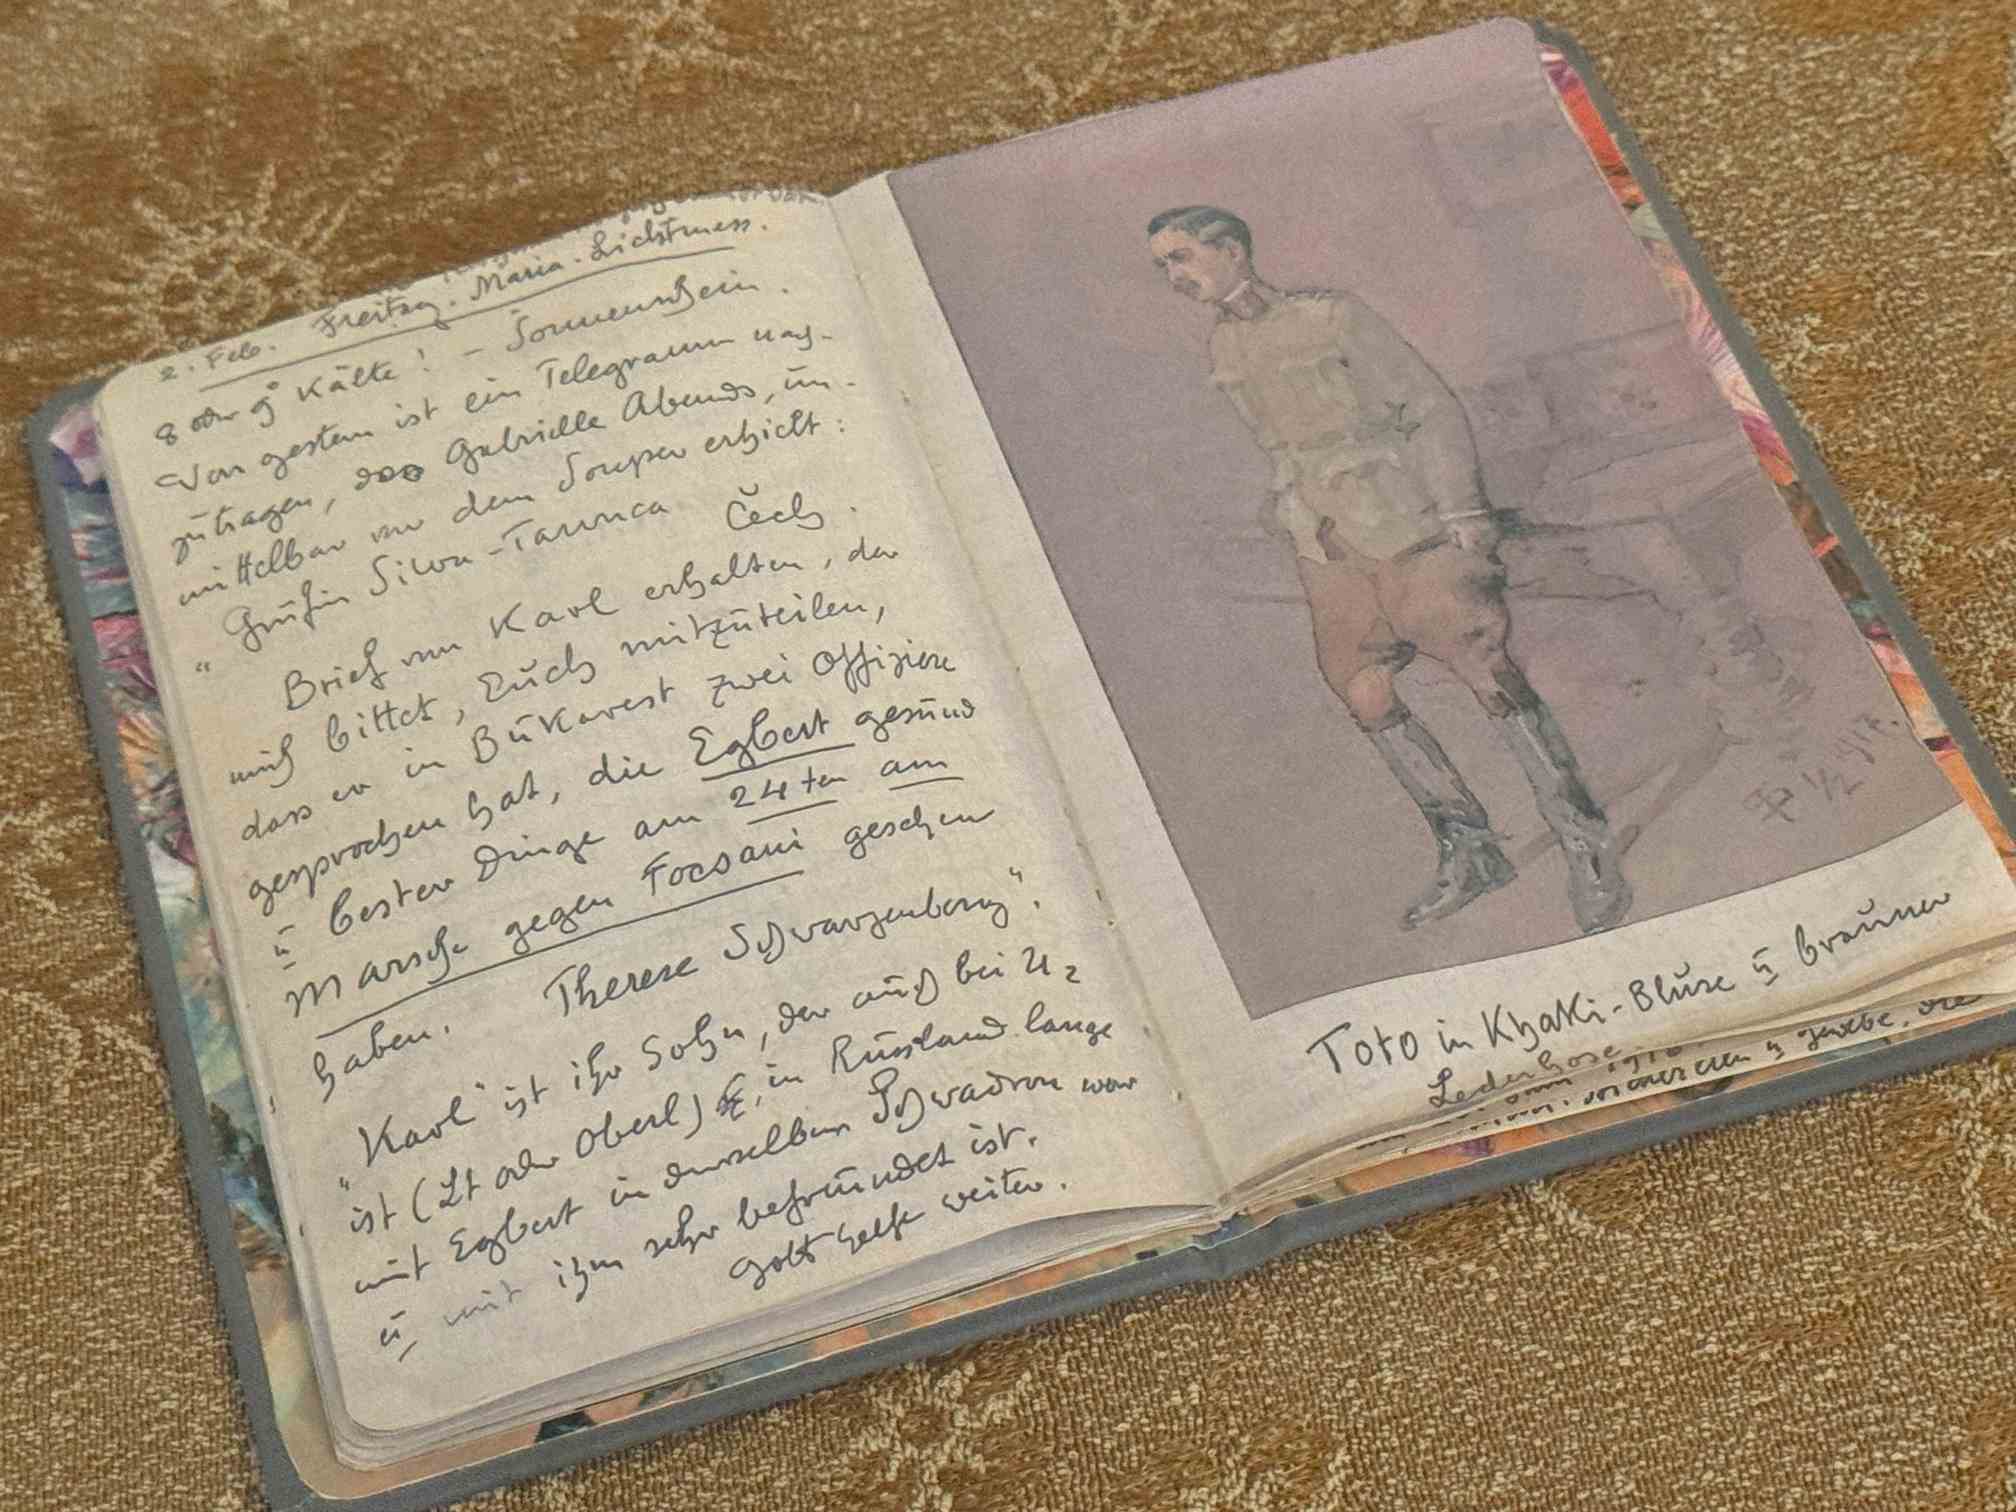 2. Feb. Freitag. Maria-Lichtmess.
8 oder 9° Kälte! – Sonnenschein.
Von gestern ist ein Telegramm nach-
zutragen, das Gabrielle Abends, un-
mittelbar vor dem Souper erhielt:
"Gräfin Silva-Tarouca Čech.
Brief von Karl erhalten, der
mich bittet, Euch mitzuteilen,
dass er in Bukarest zwei Offiziere
gesprochen hat, die Egbert gesund
u bester Dinge am 24ten am
Marsche gegen Focsani gesehen
haben. Therese Schwarzenberg".
"Karl" ist ihr Sohn, der auch bei U2
ist (Lt oder Oberl) in Russland lange
mit Egbert in derselben Schwadron war
u mit ihm sehr befreundet ist.
Gott helfe weiter.
1/2 1917.
Toto in Khaki-Bluse u brauner
Lederhose.